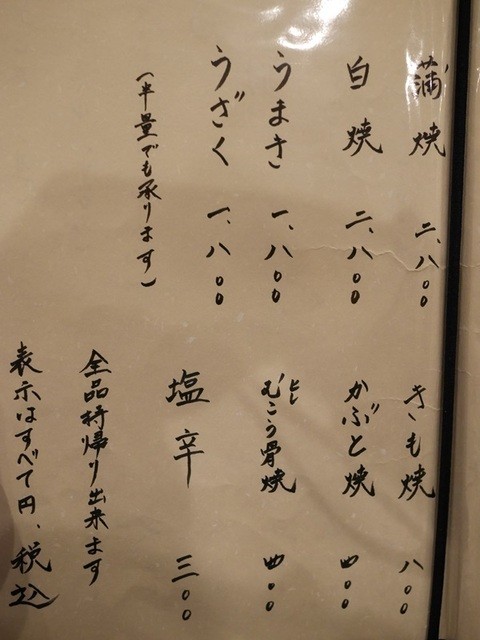 蒲焼 二、八〇〇
白焼 二、八〇〇
うまき 一、八〇〇
うざく 一、八〇〇
(半量でも承ります)
きも焼 八〇〇
かぶと焼 四〇〇
むこう骨焼 四〇〇
塩辛 三〇〇
全品持帰り出来ます
表示はすべて円、税込